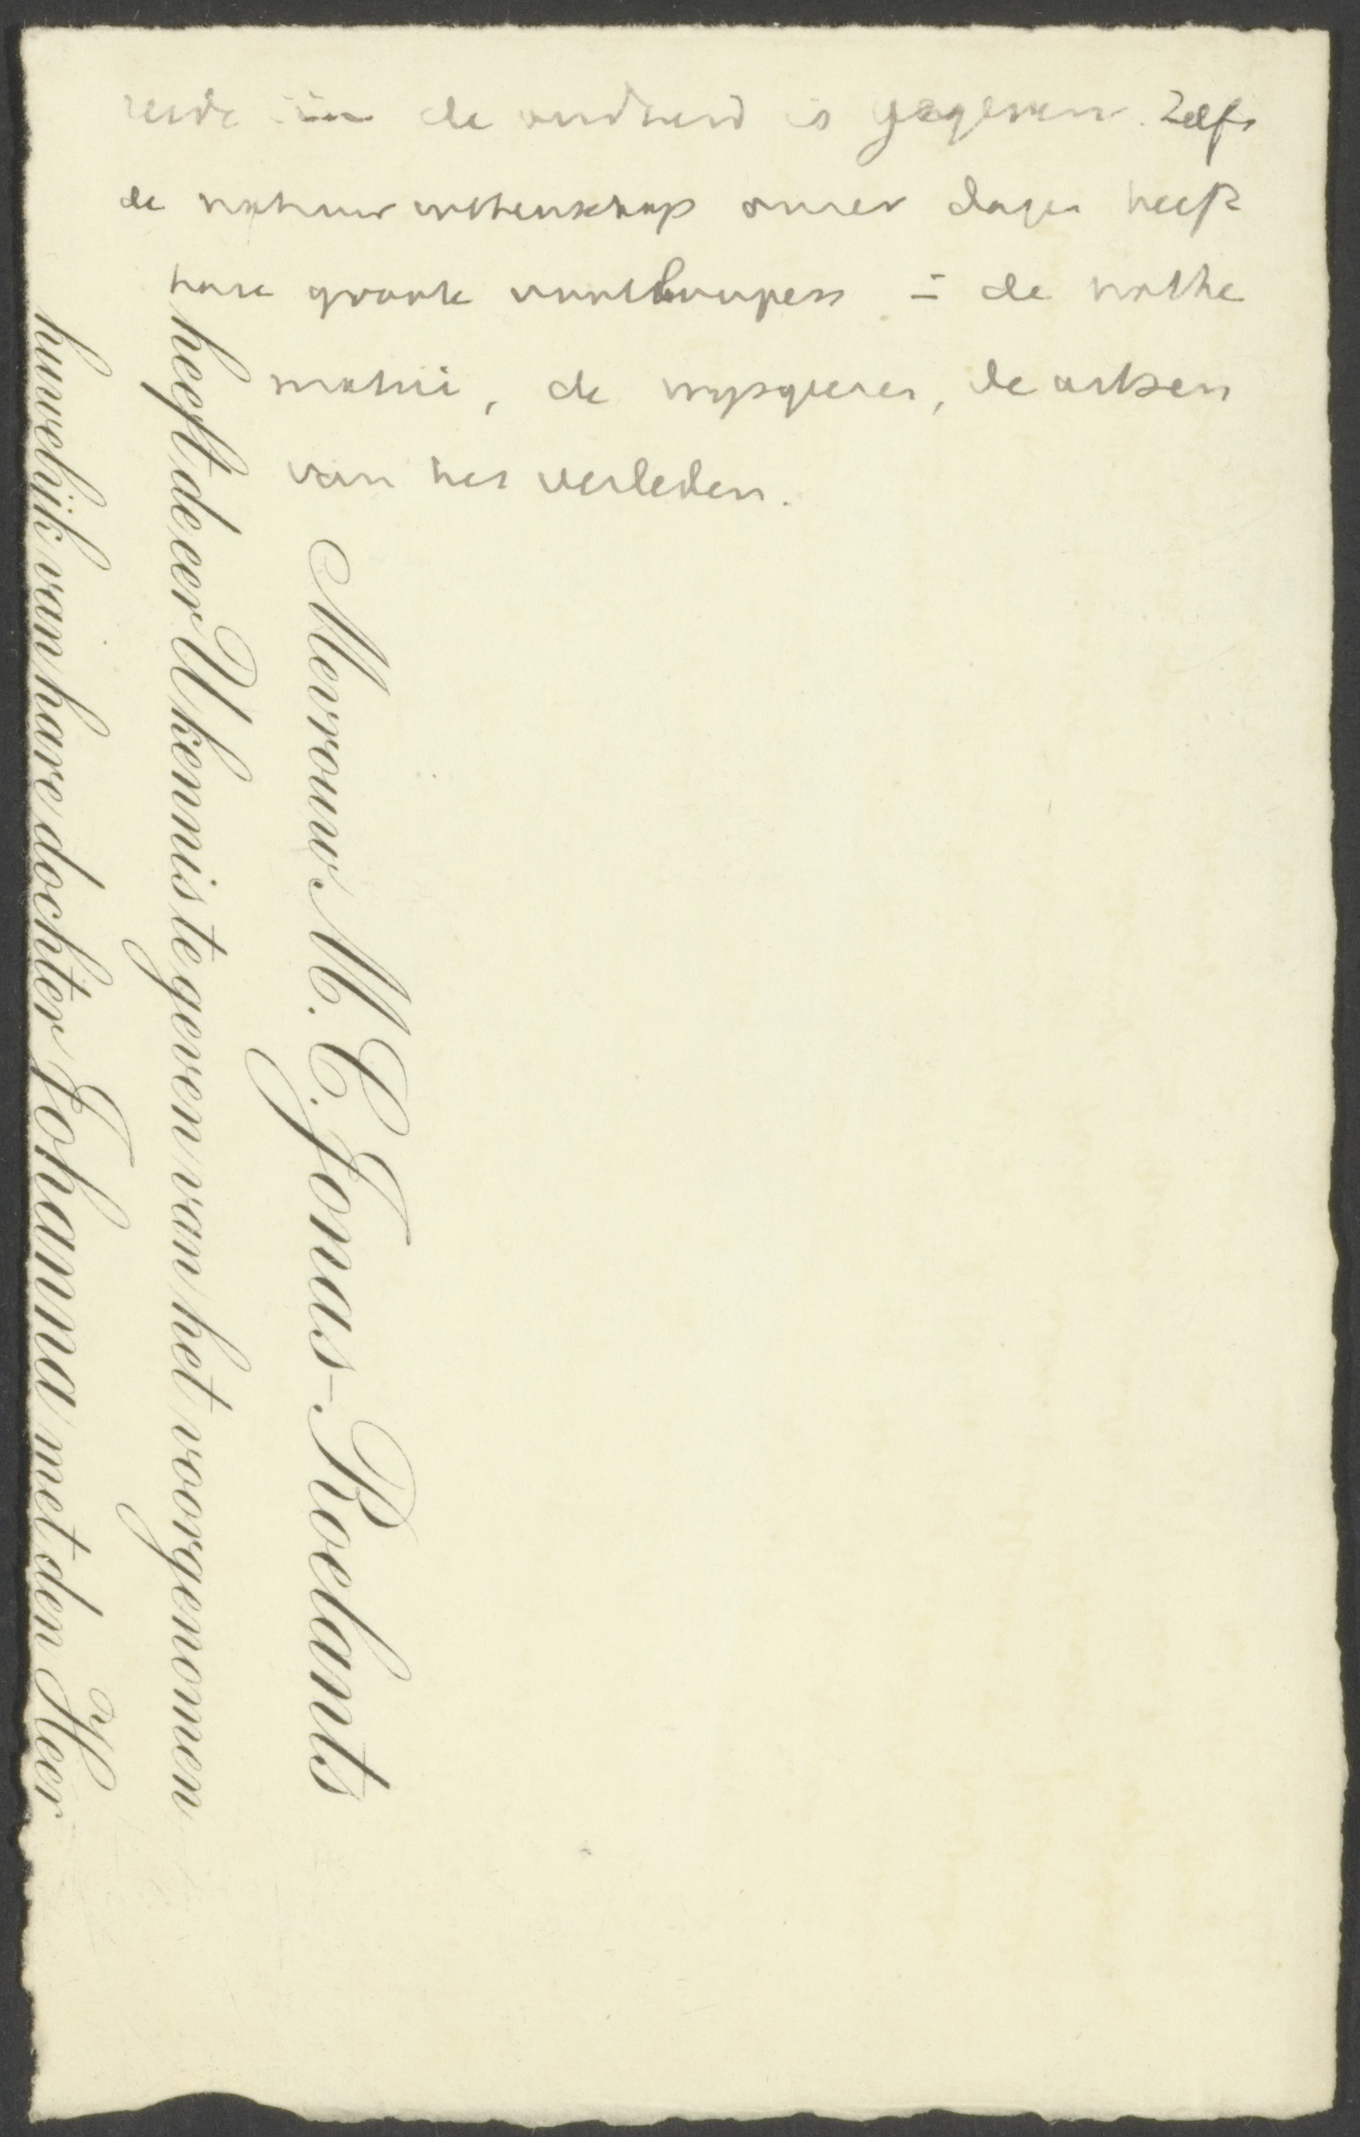 reide in de oudheid is gegeven. Zelfs
de natuurwetenschap onzer dagen heeft
hare groote voorloopers in de mathe
matici, de wijsgeeren, de artsen
van het verleden.
Mevrouw M. C. Jonas-Roelants
heeft de eer U kennis te geven van het voorgenomen
huwelijk van hare dochter Johanna met den Heer